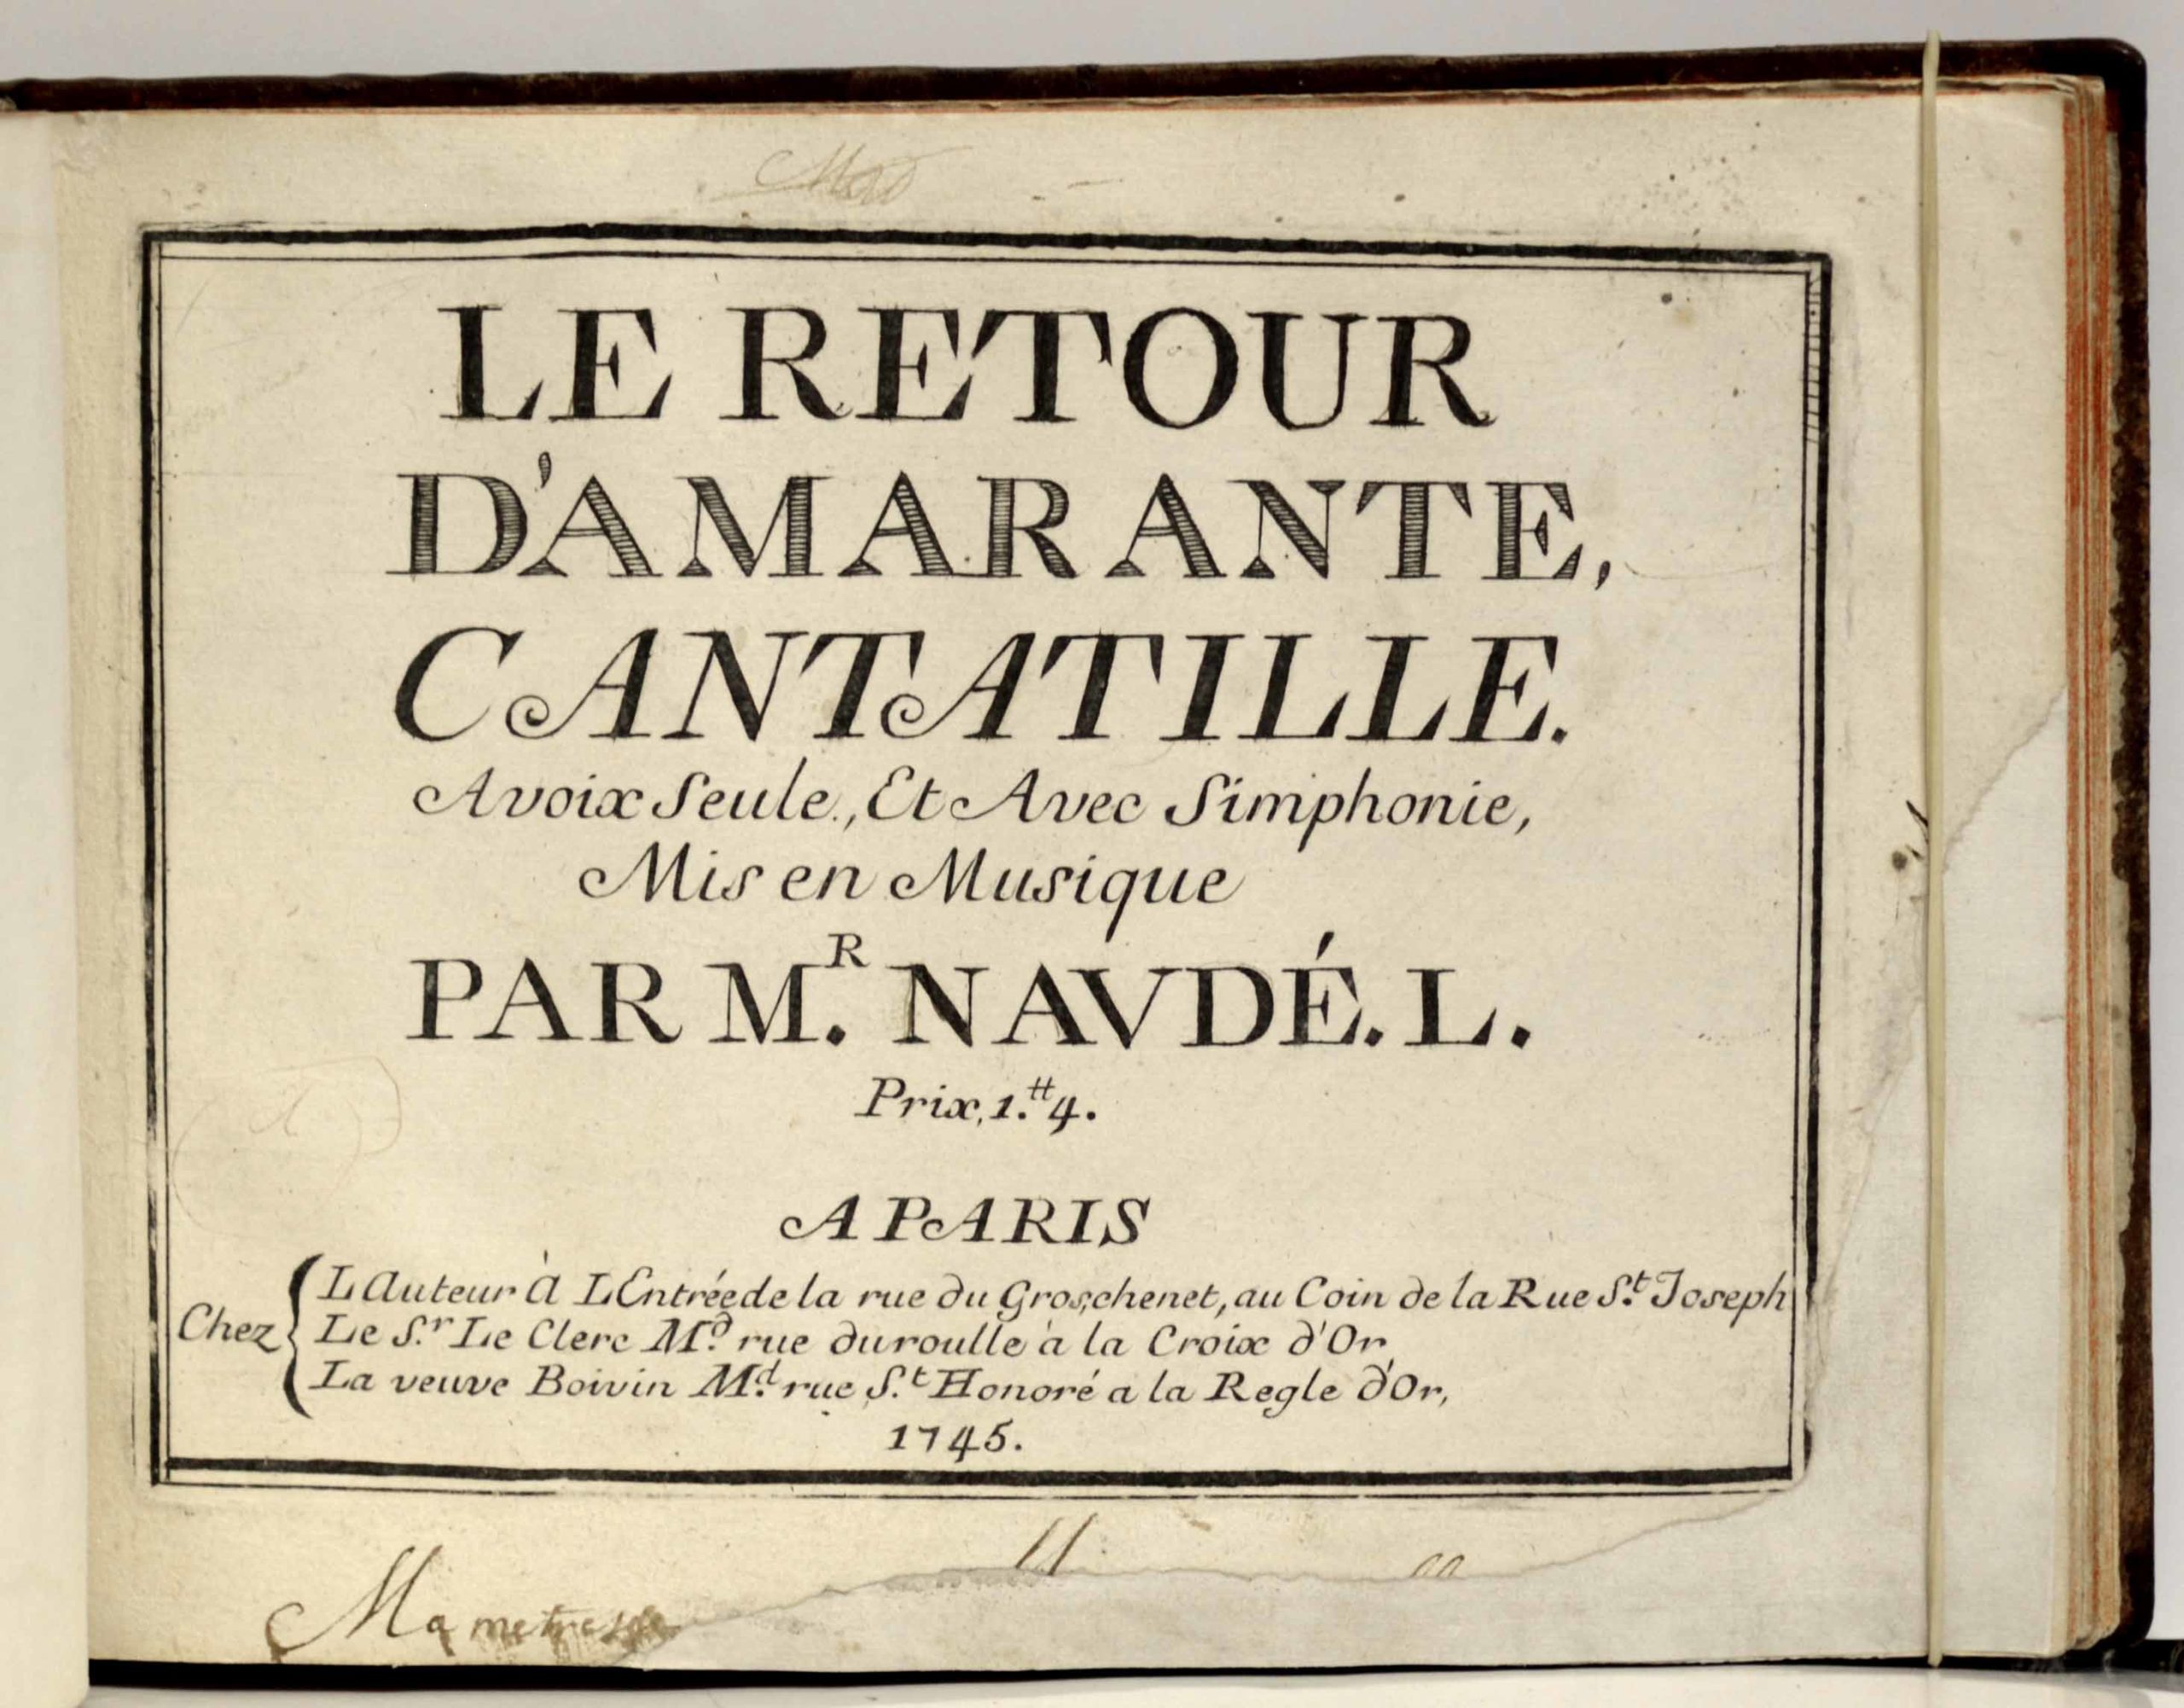 LE RETOUR
D'AMARANTE,
CANTATILLE.
Avoix Seule, Et Avec Simphonie,
Mis en Musique
PAR M.R NAVDÉ. L.
Prix, 1.tt 4.
A PARIS
Chez
L Auteur à L Entrée de la rue du Gros, chenet, au Coin de la Rue S.t Joseph
Le S.r Le Clerc M.d rue du roulle à la Croix d'Or
La veuve Boivin M.d rue S.t Honoré a la Regle d'Or,
1745.
Ma metresse